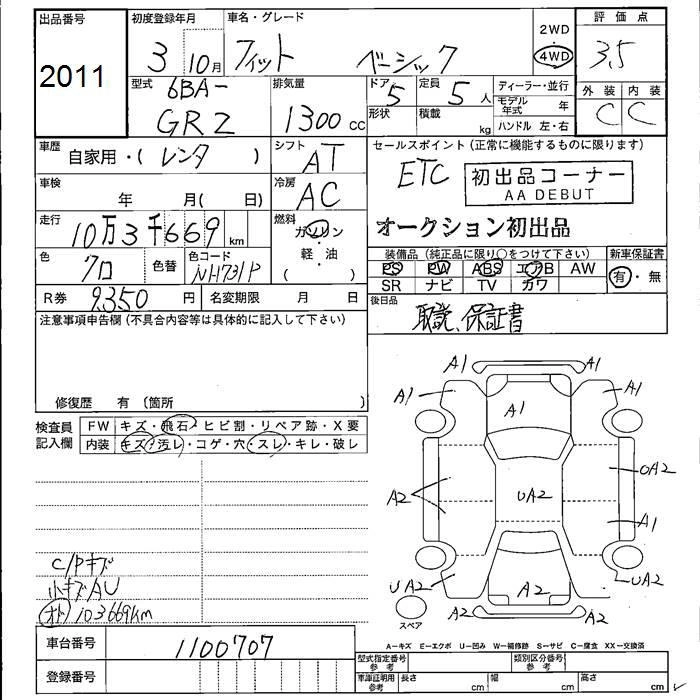 出品番号 初度登録年月 車名・グレード 2WD ・ 4WD 評価点
2011 3 10月 フィット ベーシック 3.5
型式 6BA- GR2 排気量 1300cc ドア 5 定員 5人 ディーラー・並行 外装 内装
形状 積載 kg モデル年式 年 C C
ハンドル 左・右
車歴 自家用・( レンタ ) シフト AT セールスポイント (正常に機能するものに限ります)
車検 年 月( 日) 冷房 AC ETC 初出品コーナー
AA DEBUT
走行 10万3千669km 燃料 ガソリン・軽・油 ( ) オークション初出品
色 クロ 色替 色コード NH731P 装備品 (純正品に限り○をつけて下さい) 新車保証書
PS PW ABS エアB AW 有・無
SR ナビ TV カワ
R券 9,350円 名変期限 月 日 後日品
注意事項申告欄 (不具合内容等は具体的に記入して下さい) 取説、保証書
修復歴 有 (箇所
検査員記入欄 FW キズ・飛石・ヒビ割・リペア跡・X要
内装 キズ・汚レ・コゲ・穴・スレ・キレ・破レ
A1 A1
A1 A1 A1
UA2
A2 UA2 A1
UA2 UA2
A2 A2 A2
スペア
C/Pキズ
小キズAU
オド 103669km
車台番号 1100707
A－キズ E－エクボ U－凹み W－補修跡 S－サビ C－腐食 XX－交換済
型式指定番号参考 類別区分番号参考
登録番号 車庫証明用参考 長さ cm 幅 cm 高さ cm